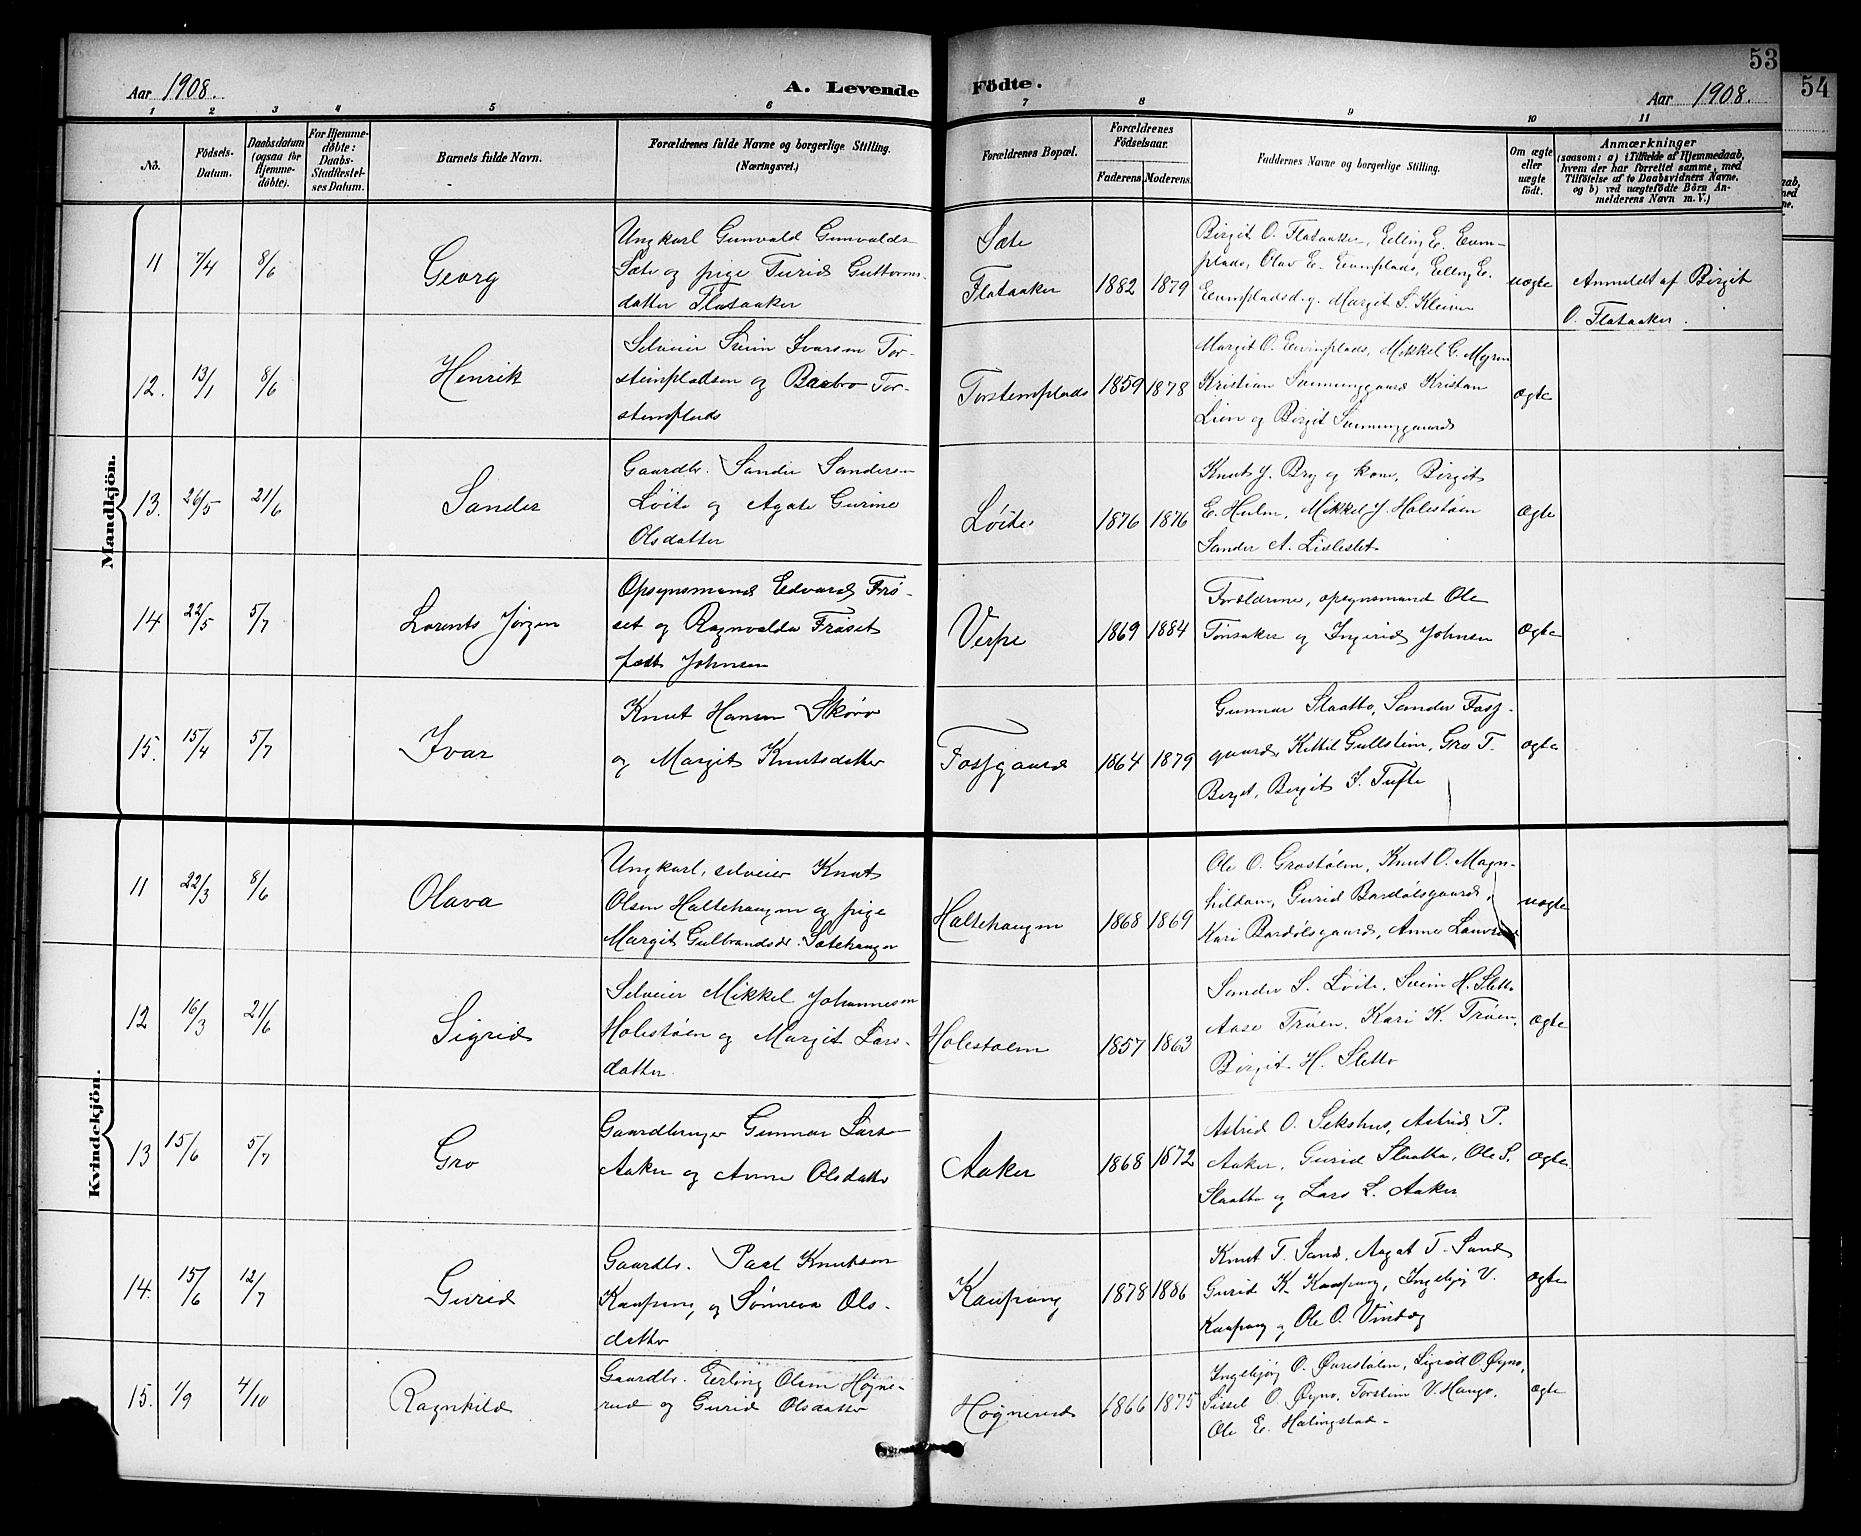 53
54
Aar 1908.
A. Levende Födte.
Aar 1908.
1 2 3 4 5 6 7 8 9 10 11
No.
Födsels-
Datum.
Daabsdatum
(ogsaa for
Hjemme-
døbte).
For Hjemme-
døbte:
Daabs-
Stadfæstel-
ses Datum.
Barnets fulde Navn.
Forældrenes fulde Navne og borgerlige Stilling.
(Næringsvei.)
Forældrenes Bopæl.
Forældrenes
Födselsaar.
Faderens Moderens
Faddernes Navne og borgerlige Stilling.
Om ægte
eller
uægte
födt.
Anmærkninger
(saasom: a) i Tilfælde af Hjemmedaab,
hvem der har forrettet samme, med
Tilföielse af to Daabsvidners Navne.
og b) ved uægtefödte Börn An-
melderens Navn m. V.)
Mandkjön.
11 7/4 8/6 Georg
Ungkarl Gunvald Gunvalds
Sæte og pige Turid Guttorms-
datter Flataaker
Sæte
Flataaker 1882 1879
Birgit O. Flataaker, Elling E. Evens-
plads, Olav E. Evensplads, Elling E.
Evenspladsd. og Margit S. Kleiven
uægte
Anmeldt af Birgit
O. Flataaker.
12. 13/1 8/6 Henrik
Selveier Svein Ivarsen Tor-
steinpladsen og Barbro Tor-
steinplads
Torsteinplads 1859 1878
Margit O. Evinplads, Mikkel G. Myren
Kristian Sønneraggaard Kristian
Lien og Birgit
ægte
13. 26/5 21/6 Sander
Gaardbr. Sander Sandersen
Løite og Agate Gurine
Olsdatter
Løite 1876 1876
Knut J. Bry og kone, Birgit
E. Holm, Mikkel J. Holestøen
Sander A. Lisleslet
Ægte
14 22/5 5/7 Lorents Jørgen
Opsynsmand Edvard Frø-
set og Ragnvalda Frøset
født Johnsen
Verpe 1869 1884
Forældrene, opsynsmand Ole
Torsaker og Ingerid Johnsen
Ægte
15. 15/4 5/7 Ivar
Knut Hansen Skøro
og Margit Knutsdatter
Fossgaard 1864 1879
Gunnar Slaatto, Sander Foss-
gaard, Kittil Gullstein, Gro T.
Berget, Birgit S. Tufte
ægte
Kvindekjön.
11 22/3 8/6 Olava
Ungkarl, selveier Knut
Olsen Haltehaugen og pige
Margit Gulbrandsdr. Satehaugen
Haltehaugen 1868 1869
Ole O. Grostølen, Knut O. Magn-
hildam, Gurid Bardølsgaard,
Kari Bardølsgaard, Anne
uægte
12 16/3 21/6 Sigrid
Selveier Mikkel Johannesen
Holestøen og Margit Lars-
datter.
Holestølen 1857 1863
Sander S. Løite, Svein H. Sletto
Aase Trøen, Kari K. Trøen,
Birgit H. Sletto
ægte
13 15/6 5/7 Gro
Gaardbruger Gunnar Larsen
Aaker og Anne Olsdatter
Aaker 1868 1872
Astrid O. Sekshus, Astrid P.
Aaker, Gurid Slaatta, Ole S.
Slaatto og Lars L. Aaker
ægte
14. 15/6 12/7 Gurid
Gaardbr. Paal Knutsen
Kaupang og Sønneva Ols-
datter
Kaupang 1878 1886
Knut T. Sand, Aagot T. Sand
Gurid K. Kaupang, Ingebjør V.
Kaupang og Ole O. Vindeg
ægte
15. 1/9 4/10 Ragnhild
Gaardbr. Erling Olsen Høgne-
rud og Gurid Olsdatter
Høgnerud 1866 1875
Ingebjør O. Øvrestølen, Sigrid O. Øyno,
Sissel O. Øyno, Torstein V. Haugo,
Ole E. Halingstad.
ægte